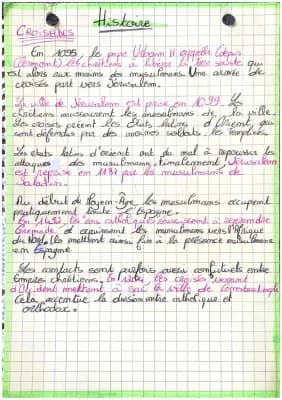 Histoire
CROISADES
En 1095, le pape Urbain II appelle (depuis
Clermont) les chrétiens à libérer la terre sainte qui
est alors aux mains des musulmans. Une armée de
croisés part vers Jérusalem.
La ville de Jérusalem est prise en 1099. Les
chrétiens massacrent les musulmans de la ville.
Les croisés créent les États latins d'Orient, qui
sont défendus par des moines soldats, les templiers.
Les états latins d'orient ont du mal à repousser les
attaques des musulmans, finalement, Jérusalem
est reprise en 1187 par les musulmans de
Saladin.
Au début du Moyen-Âge, les musulmans occupent
pratiquement toute l'Espagne.
En 1492, les rois catholiques réussissent à reprendre
Grenade et expulsent les musulmans vers l'Afrique
du Nord. Ils mettent aussi fin à la présence musulmane
en Espagne
Les conflits sont parfois aussi conflictuels entre
Empires chrétiens. En 1204, les croisés venant
d'Occident mettent à sac la ville de Constantinople
Cela accentue la division entre catholique et
orthodoxe.